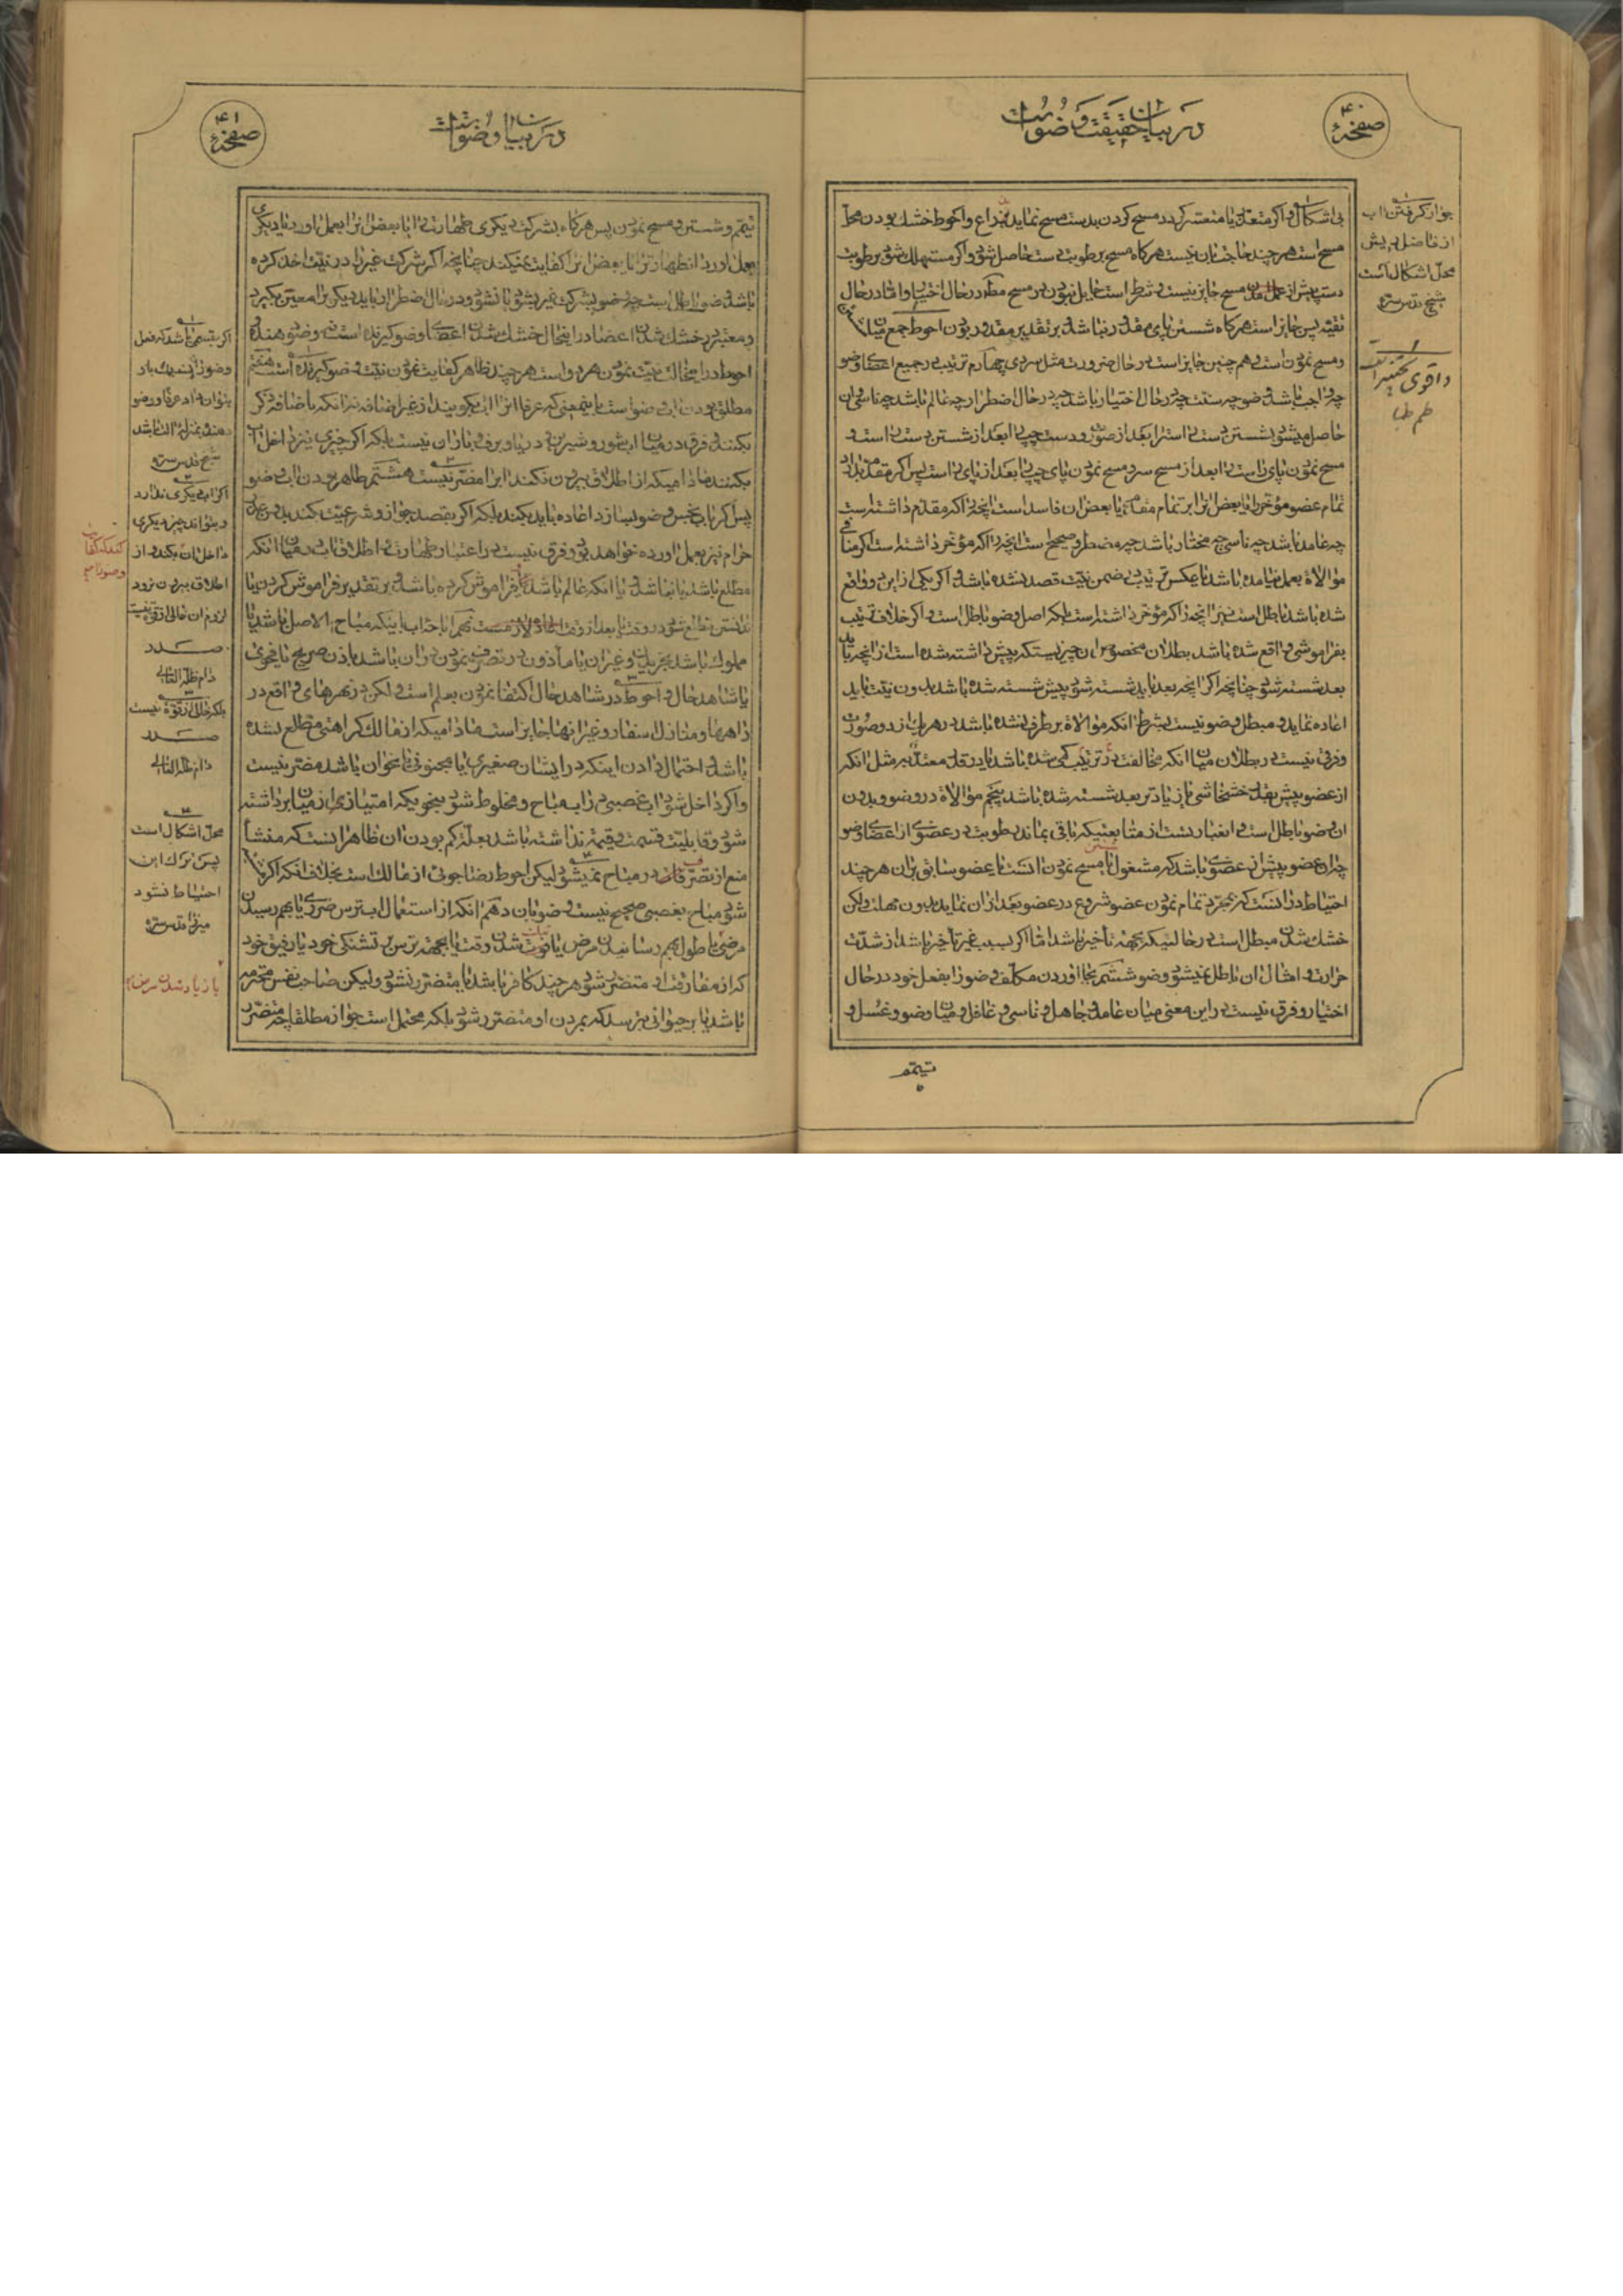 صفحهٔ ۴۰
در بیان حقیقت وضو است
بی اشکال و اگر متعذر یا متعسر گردد مسح کردن بدست مسح نماید بذراع و احوط خشک بودن محل
مسح است هر چند حاجت بان نیست هرگاه مسح برطوبت دست حاصل شود و اگر مستهلک شود برطوبت
دست پیش از مسح جایز نیست و شرط است حایل نبودن در مسح مگر در حال اختیار و اما در حال
تقیه پس جایز است هرگاه شستن پای مقدور نباشد و بر تقدیر مقدور بودن احوط جمع میان
و مسح نمودن است و هم چنین جایز است در حال ضرورت مثل سردی چهارم ترتیب در جمیع اعضای وضو
چه واجب باشد وضو چه سنت چه در حال اختیار باشد چه در حال اضطرار چه عالم باشد چه ناسی و ان
حاصل میشود بشستن دست راست را بعد از صورت و دست چپ را بعد از شستن دست راست و
مسح نمودن پای راست را بعد از مسح سر و مسح نمودن پای چپ را بعد از پای راست پس اگر مقدم بدارد
تمام عضو مؤخر را یا بعض انرا بر تمام مقدم یا بعض ان فاسد است انچه را که مقدم داشته است
چه عامد باشد چه ناسی چه مختار باشد چه مضطر و صحیح است انچه را که مؤخر داشته است اگر منافی
موالاة بعمل نیامده باشد تا عکس ترتیب در ضمن نیت قصد نشده باشد و اگر یکی از این دو واقع
شده باشد باطل است نیز انچه را که مؤخر داشته است بلکه اصل وضو باطل است و اگر خلاف ترتیب
بفراموشی واقع شده باشد بطلان مخصوص بان چیزیست که پیش داشته شده است از انچه باید
بعد شسته شود چنانچه اگر انچه بعد باید شسته شود پیش شسته شده باشد بدون نیت باید
اعاده نماید و مبطل وضو نیست بشرط انکه موالاة برطرف نشده باشد در هر یک از دو صورت
و فرق نیست در بطلان میان انکه مخالفت در ترتیب کمی شده باشد یا در قدر معتد به مثل انکه
از عضو پیش بقدر خشخاشی یا زیادتر بعد شسته شده باشد پنجم موالاة در وضو و بدون
ان وضو باطل است و ان عبارتست از متابعتیکه باقی بماند رطوبت در عضوی از اعضای وضو
چه ان عضو پیش از عضوی باشد که مشغول بمسح نمودن انست یا عضو سابق بر ان هر چند
احتیاط در انست که بمجرد تمام نمودن عضو شروع در عضو بعد از ان نماید بدون مهلت ولکن
خشک شدن مبطل است در حالتیکه بجهت تأخیر باشد اما اگر بسبب غیر تأخیر باشد از شدت
حرارت و امثال ان باطل نمیشود وضو ششم بجا اوردن مکلف وضو را بفعل خود در حال
اختیار و فرق نیست در این معنی میان عامد و جاهل و ناسی و غافل و میان وضو و غسل و
تیمم
جواز گرفتن اب
از فاضل ریش
محل اشکال است
شیخ قدس سره
صفحهٔ ۴۱
تیمم و شستن و مسح نمودن پس هرگاه بشرکت دیگری طهارت را یا بعض انرا بعمل اورد یا دیگری
بعمل اورد ان طهارت را یا بعض انرا کفایت نمیکند چنانچه اگر شرکت غیر را در نیت اخذ کرده
باشد وضو باطل است چه وضو بشرکت غیر بشود یا نشود و در حال اضطرار باید دیگری را معین بگیرد
و معتبر در خشک شدن اعضا در اینحال خشک شدن اعضای وضو گیرنده است نه وضو دهنده
احوط در اینحالت نیت نمودن هر دو است هر چند ظاهر کفایت نمودن نیت وضو گیرنده است هفتم
مطلق بودن اب وضو است باینمعنی که عرفا انرا اب بگویند از غیر اضافه نه انکه با اضافه ذکر
بکنند و فرق در میان اب شور و شیرین و دریا و برف و باران نیست بلکه اگر چیزی نیز داخل اب
بکنند مادامیکه از اطلاق بیرون نکند انرا مضر نیست هشتم طاهر بودن اب وضو
پس اگر باب نجس وضو بسازد اعاده باید بکند بلکه اگر بقصد جواز و شرعیت کند
حرام نیز بعمل اورده خواهد بود و فرق نیست در اعتبار طهارت و اطلاق اب در میان انکه
مطلع باشد یا نباشد یا انکه عالم باشد و فراموش کرده باشد و بر تقدیر فراموش کردن یا
ندانستن مطلع شود در وقت یا بعد از وقت اعاده لازمست نهم اباحه اب باینکه مباح الاصل باشد یا
مملوک باشد
یا شاهد حال و احوط در شاهد حال اکتفا نمودن بعلم است ولکن در نهرهای واقع در
راهها و منازل اسفار و غیر انها جایز است مادامیکه از مالک کراهتی مطلع نشده
باشد و احتمال دادن اینکه در ایشان صغیری یا مجنونی نا نحو ان باشد مضر نیست
و اگر داخل شود اب غصبی در اب مباح و مخلوط شود بنحویکه امتیاز از میان برداشته
شود و قابلیت قسمت و قیمت نداشته باشد بعلت کم بودن ان ظاهر انست که منشأ
منع از تصرف در مباح نمیشود لیکن احوط رضا جوئی از مالک است بخلاف انکه اگر
شود مباح بغصبی صحیح نیست وضو بان دهم انکه از استعمال اب ترس ضرری یا بهم رسیدن
مرضی یا طول بهم رسانیدن مرض یا فوت شدن وقت یا بجهت ترس بر تشنگی خود یا رفیق خود
که از مفارقت او متضرر شود هر چند کافر باشد یا متضرر نشود ولیکن صاحب نفس محترمه
باشد یا بر حیوانی بترسد که بمردن او متضرر شود بلکه محتمل است جواز مطلقا چه متضرر
شیخ قدس سره
اگر اب دیگری ندارد
و بتواند چیز دیگری
داخل ان بکند و از
اطلاق بیرون نرود
لزوم ان خالی از قوة نیست
صدر
دام ظله العالی
بلکه خالی از قوة نیست
صدر
دام ظله العالی
محل اشکال است
پس ترک این
احتیاط نشود
میرزا قدس سره